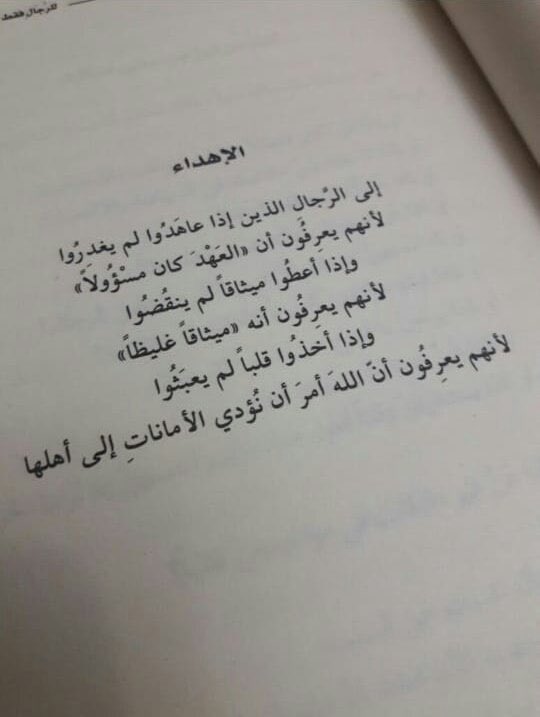 للرجال فقط
الإهداء
إلى الرّجال الذين إذا عاهَدُوا لم يغدرُوا
لأنهم يعرِفُون أن «العَهْدَ كان مسْؤُولاً»
وإذا أعطُوا ميثاقاً لم ينقُضُوا
لأنهم يعرِفُون أنه «ميثاقاً غليظاً»
وإذا أخذُوا قلباً لم يعبَثُوا
لأنهم يعرِفُون أنّ اللهَ أمرَ أن نُؤدي الأماناتِ إلى أهلها